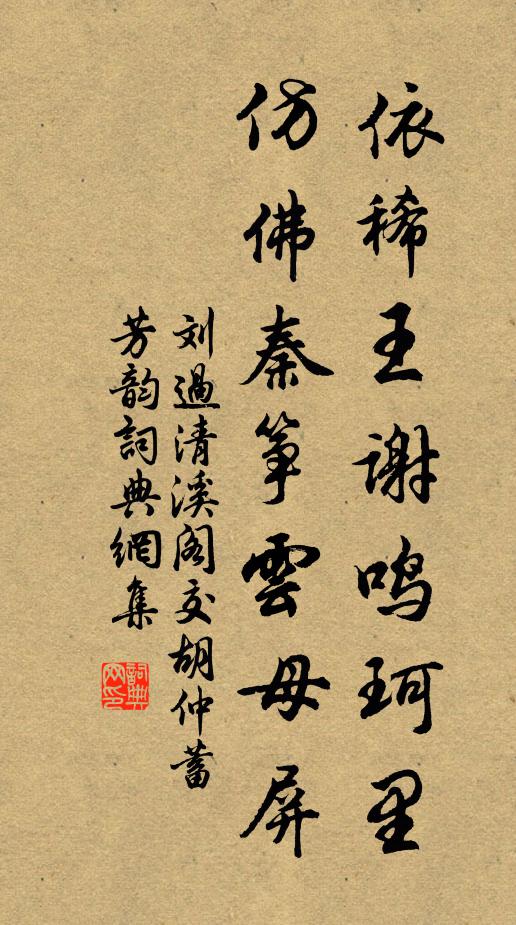 依稀王谢鸣珂里
仿佛秦筝雲母屏
刘過清溪阁交胡仲蓄
芳韵詞典網集
詞典
网印